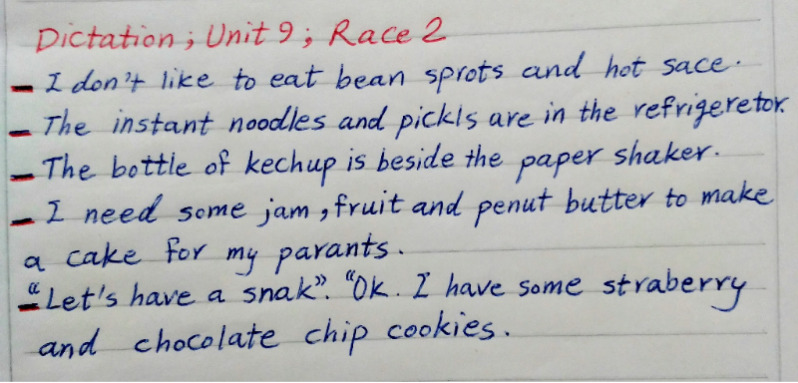 Dictation; Unit 9; Race 2
- I don't like to eat bean sprots and hot sace.
- The instant noodles and pickls are in the refrigeretor.
- The bottle of kechup is beside the paper shaker.
- I need some jam, fruit and penut butter to make
a cake for my parants.
- "Let's have a snak". "Ok. I have some straberry
and chocolate chip cookies.